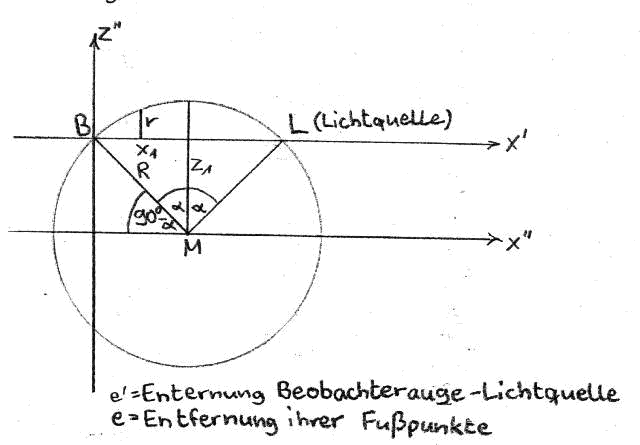 z"
B
r
L (Lichtquelle)
x'
x₁
R
z₁
90°-α
α
α
x"
M
e'=Enternung Beobachterauge-Lichtquelle
e=Entfernung ihrer Fußpunkte